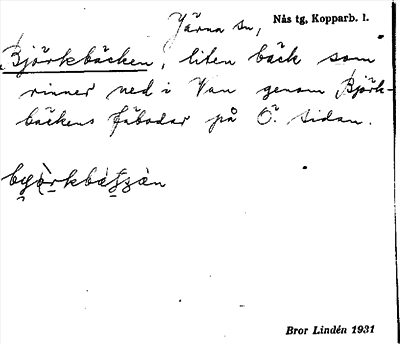 Järna sn, Nås tg, Kopparb. l.
Björkbäcken, liten bäck som
rinner ned i Van genom Björk-
bäckens fäbodar på Ö. sidan.
Bror Lindén 1931